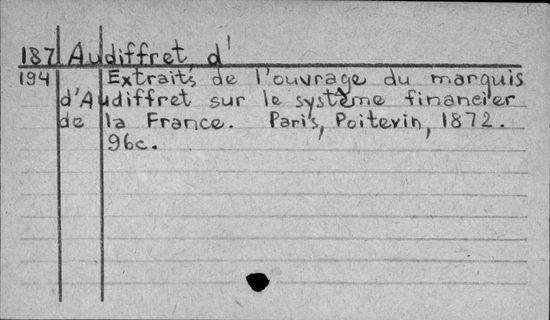 187 Audiffret, d'
194 Extraits de l'ouvrage du marquis
d'Audiffret sur le système financier
de la France. Paris, Poitevin, 1872.
96c.